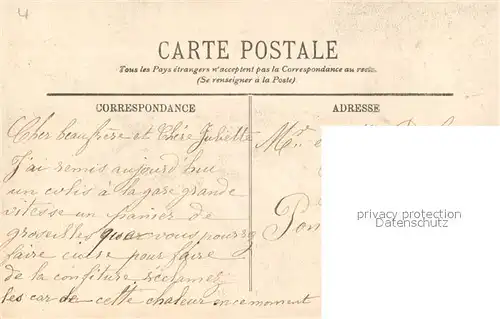 4
CARTE POSTALE
Tous les Pays étrangers n'acceptent pas la Correspondance au recto.
(Se renseigner à la Poste)
CORRESPONDANCE
ADRESSE
Cher beaufrère et Chère Juliette
J'ai remis aujourd'hui
un colis à la gare grande
vitesse un panier de
groseilles que vous pourrez
faire cuire pour faire
de la confiture réclamez
les car de cette chaleur en ce moment
Pon
privacy protection
AKPool.de